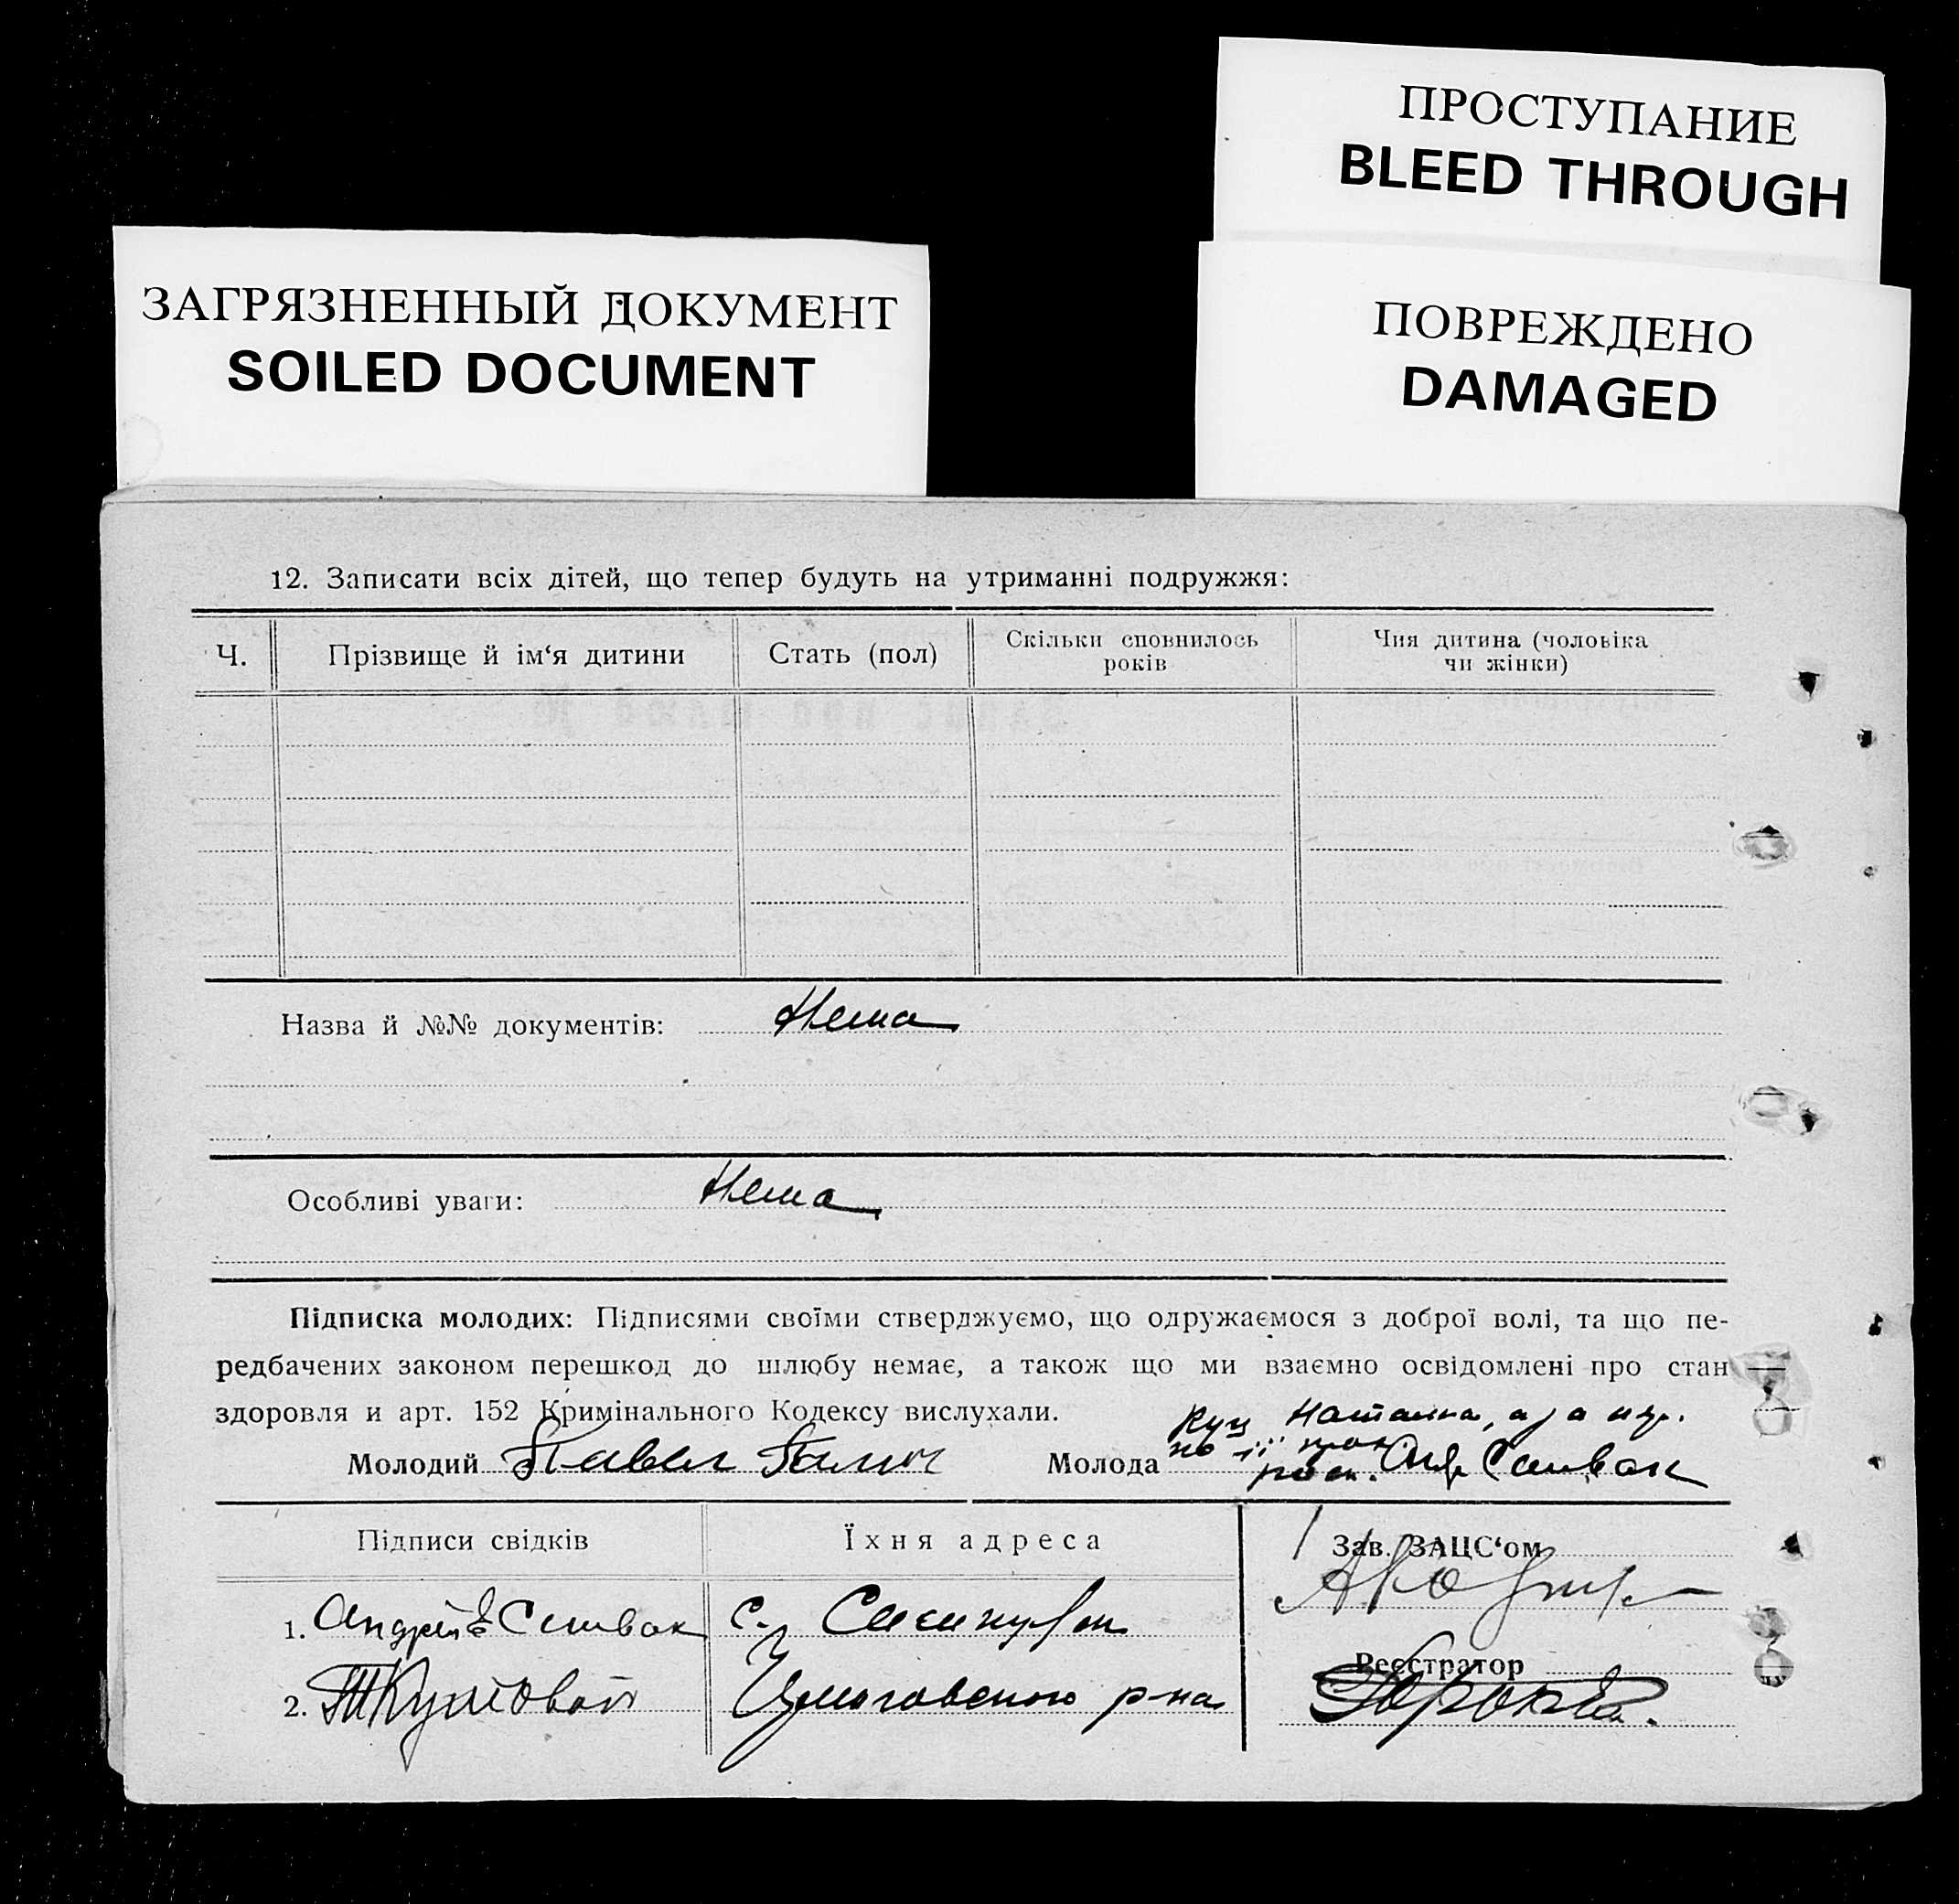 ПРОСТУПАНИЕ
BLEED THROUGH
ЗАГРЯЗНЕННЫЙ ДОКУМЕНТ
SOILED DOCUMENT
ПОВРЕЖДЕНО
DAMAGED
12. Записати всіх дітей, що тепер будуть на утриманні подружжя:
Ч. Прізвище й ім‘я дитини Стать (пол) Скільки сповнилось років Чия дитина (чоловіка чи жінки)
Назва й №№ документів: Нема
Особливі уваги: Нема
Підписка молодих: Підписями своїми стверджуємо, що одружаємося з доброї волі, та що пе-
редбачених законом перешкод до шлюбу немає, а також що ми взаємно освідомлені про стан
здоровля и арт. 152 Кримінального Кодексу вислухали.
Куц Наталка, а за
по її
Молодий Павел Молода Спивак
Підписи свідків Їхня адреса Зав. ЗАЦС‘ом
1. Андрій Спивак с.
Реєстратор
2. р-на